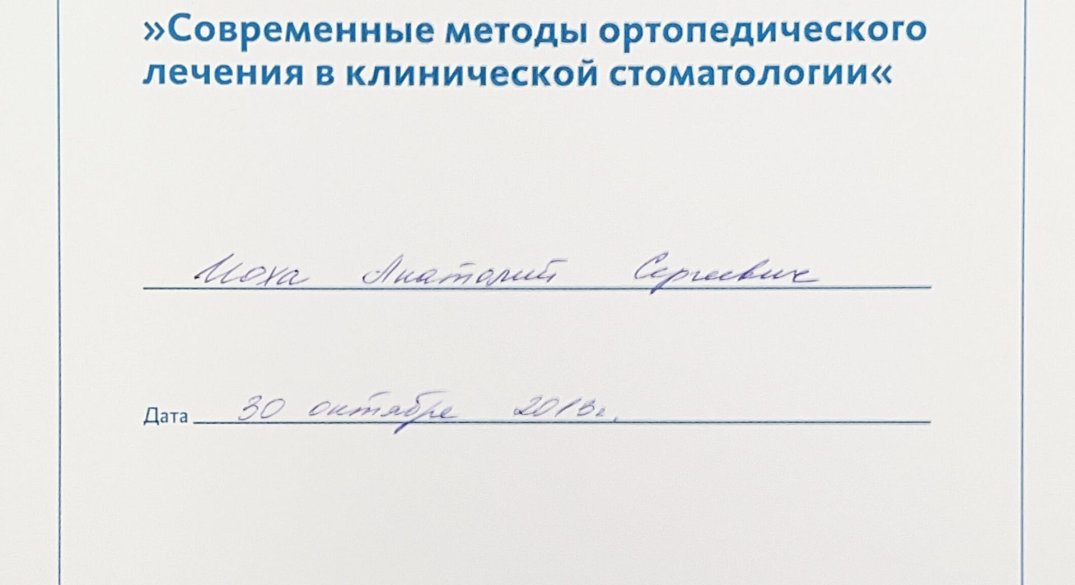 »Современные методы ортопедического
лечения в клинической стоматологии«
Моха Анатолий Сергеевич
Дата 30 октября 2013г.